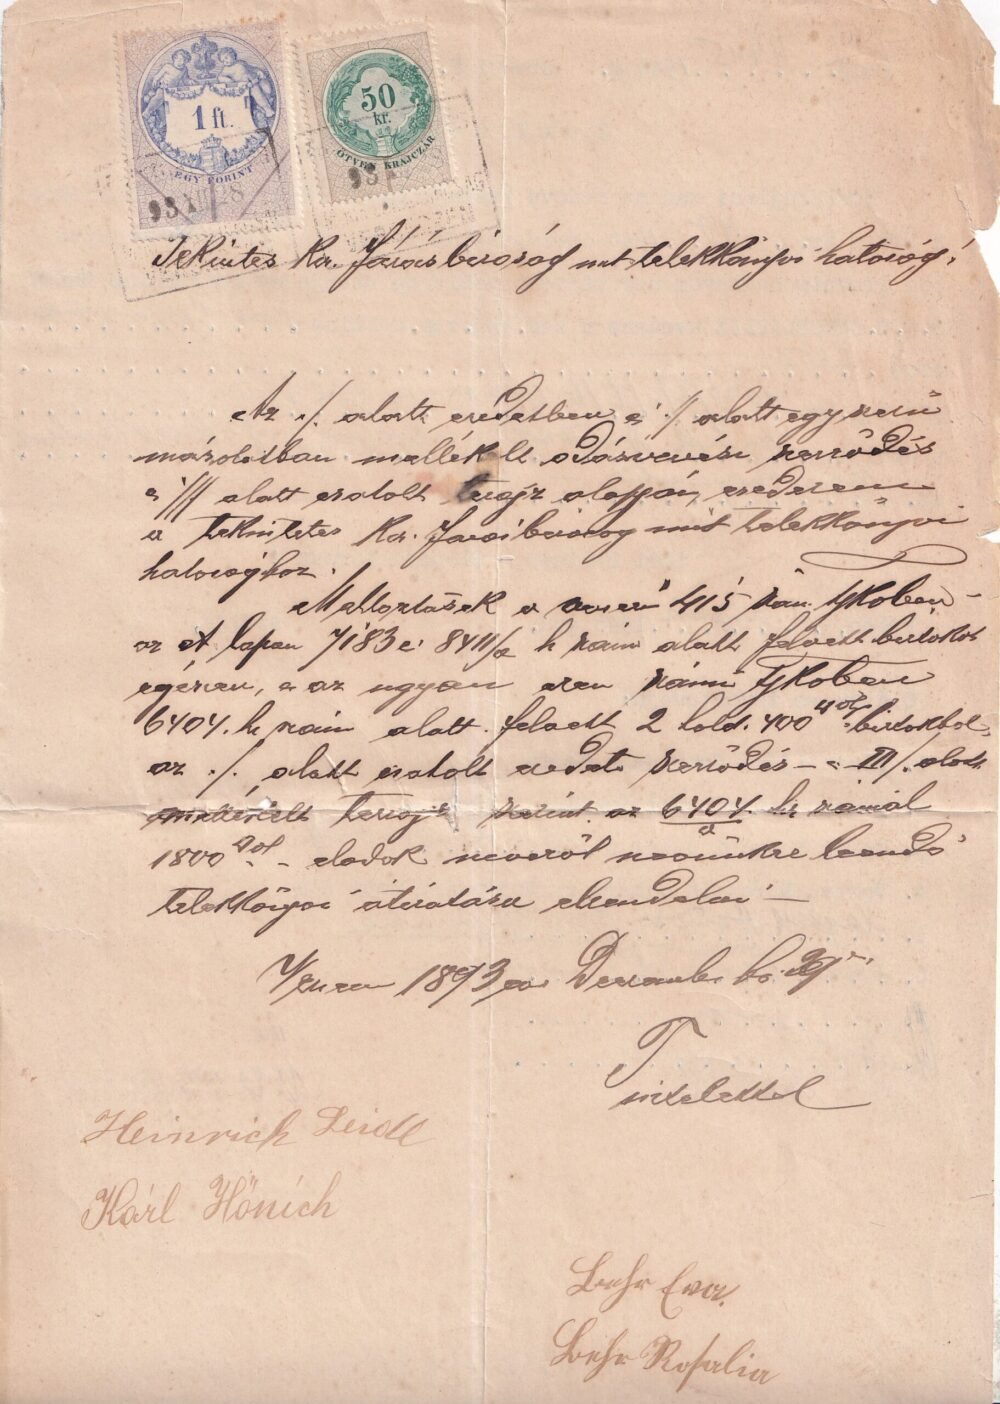 1 ft.
EGY FORINT
50
kr.
ÖTVEN KRAJCZÁR
93 XII 28
93
Tekintetes Kir. Járásbiróság mint telekkönyvi hatóság!
Az ·/. alatt eredetben és ·/. alatt egyszerű
másolatban mellékelt adásvevési szerződés
és ·/// alatt csatolt terajz alapján, esedezem
a tekintetes Kir. Járásbiróság mint telekkönyvi
hatósághoz.
Méltoztassék a 415 szám. tjkvben
az A lapon 7183 és 8411/a h szám alatt felvett birtokot
egészen, és az ugyan ezen számu tjkvben
6404. h. szám alatt felvett 2 hold. 400 □öl birtokbol
az ·/. alatt csatolt eredeti szerződés – és III/. alatt
mellékelt terajz szerint az 6404/a. hr számal
1800 □öl – eladok nevéről nevünkre leendő
telekkönyvi átiratásu elrendelni –
1893 évi Dezember hó
Tisztelettel
Heinrich Leidl
Karl Hönich
Behr Eva.
Behr Rosalia